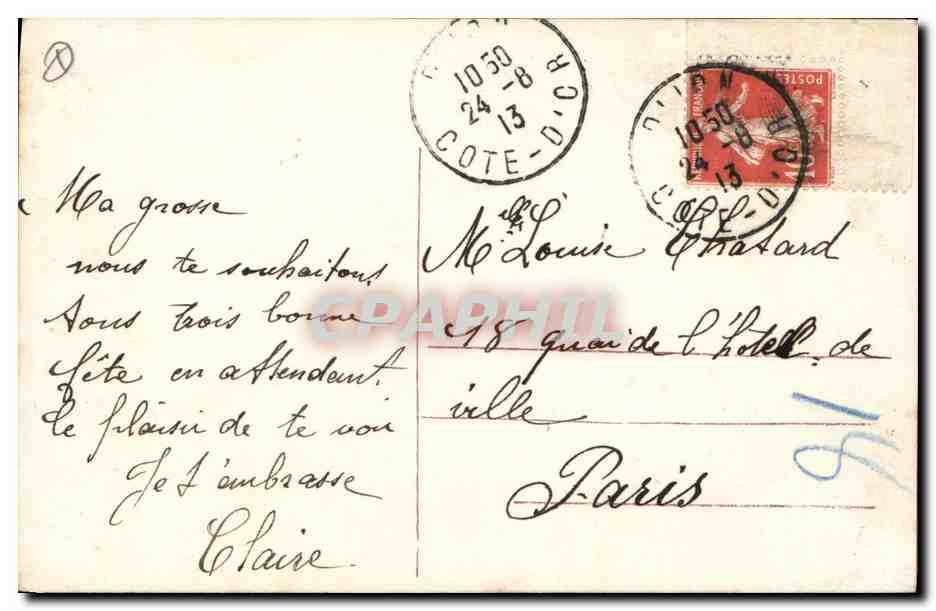 Ma grosse
nous te souhaitons
tous trois bonne
fête en attendant
le plaisir de te voir
Je t'embrasse
Claire
DIJON
10 50
24 -8
13
COTE-D'OR
DIJON
10 50
24 -8
13
COTE-D'OR
POSTES
10c
Mlle Louise Chatard
18 quai de l'hotel de
ville
Paris
18
CPAPHIL